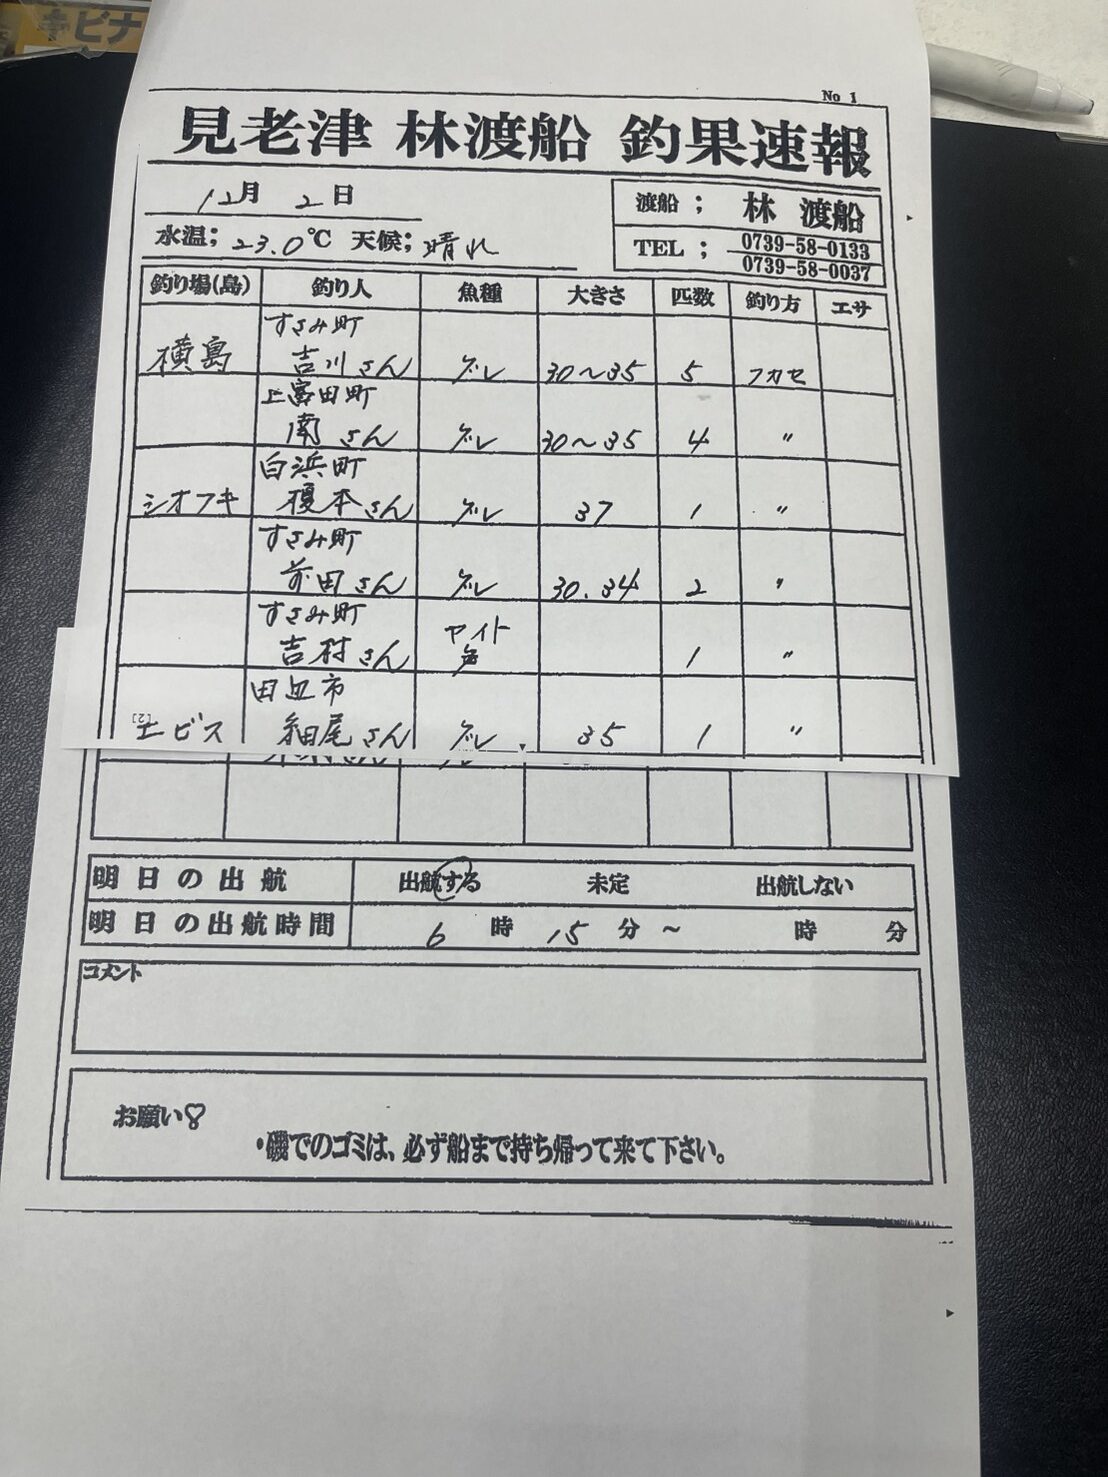 キビナ
No 1
見老津 林渡船 釣果速報
12月 2日
渡船； 林 渡船
水温；23.0℃ 天候；晴れ
TEL； 0739-58-0133
0739-58-0037
釣り場(島) 釣り人 魚種 大きさ 匹数 釣り方 エサ
すさみ町
横島 吉川さん グレ 30～35 5 フカセ
上富田町
南さん グレ 30～35 4 〃
白浜町
シオフキ 榎本さん グレ 37 1 〃
すさみ町
前田さん グレ 30.34 2 〃
すさみ町
吉村さん 1 〃
田辺市
エビス 細尾さん グレ 35 1 〃
明日の出航 出航する 未定 出航しない
明日の出航時間 6時 15分～ 時 分
コメント
お願い♡
・磯でのゴミは、必ず船まで持ち帰って来て下さい。